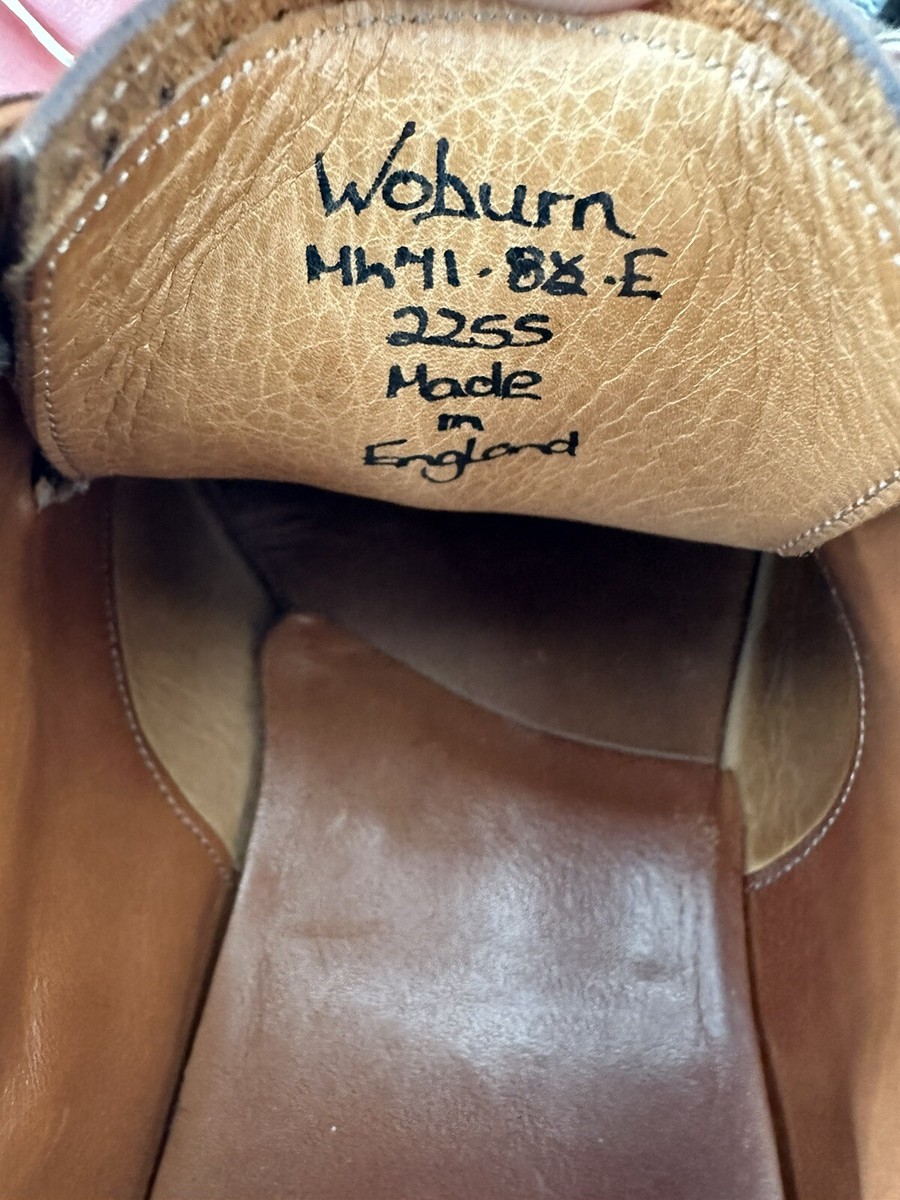 Woburn
Mh71 · 8½ · E
2255
Made
in
England